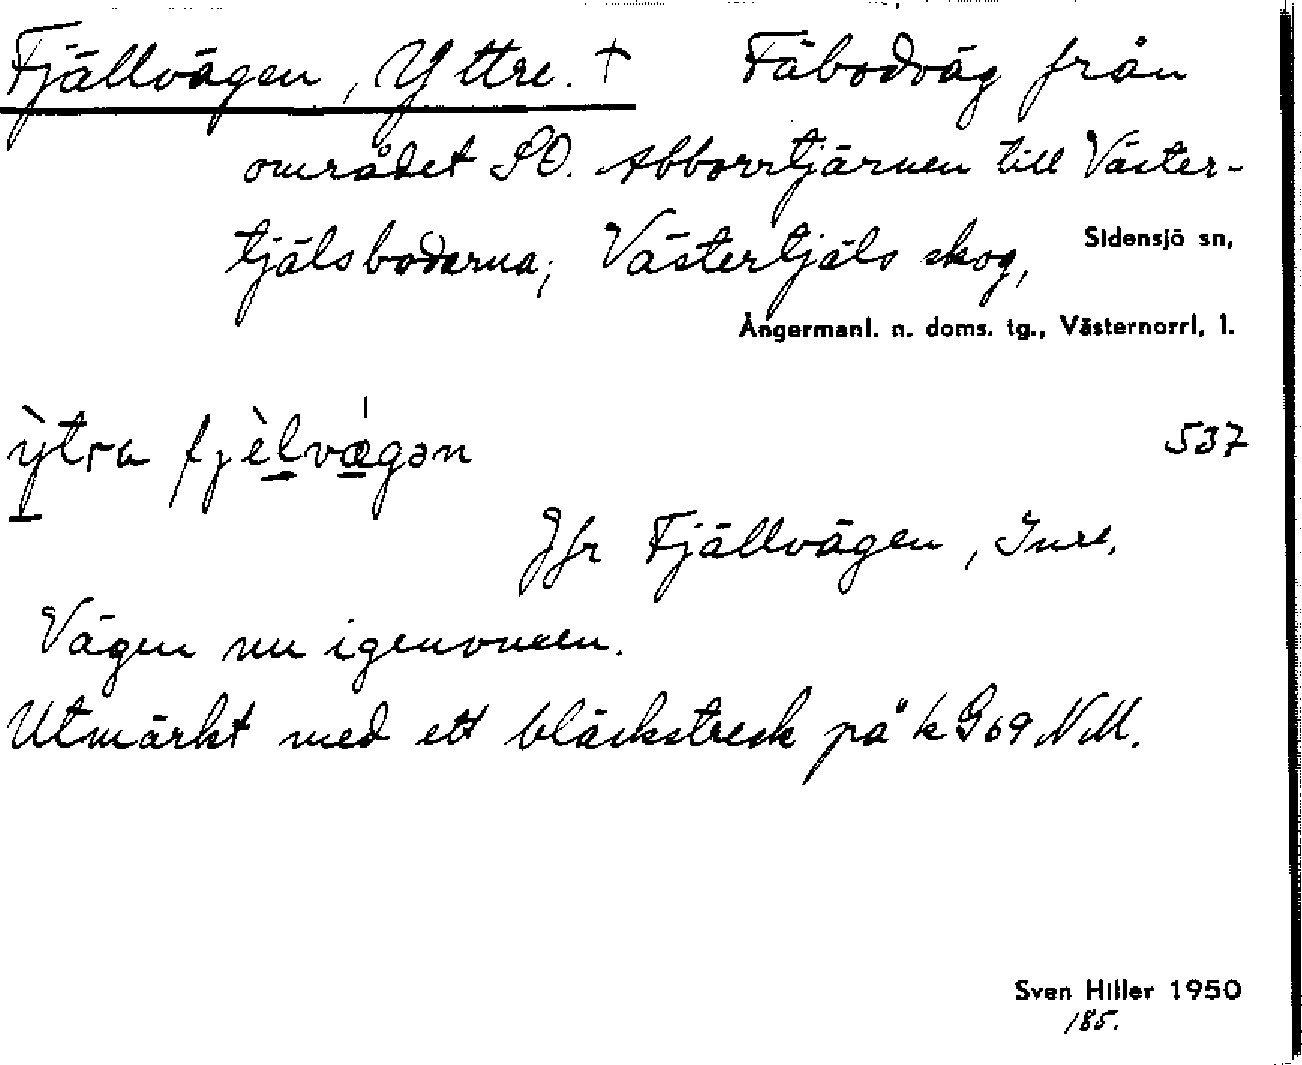 Fjällvägen, Yttre. † Fäbodväg från
området SO. Abborrtjärnen till Väster-
tjälsbodarna; Västertjäls skog, Sidensjö sn,
Ångermanl. n. doms. tg., Västernorrl. l.
ỳtra fjèlvǽgən 537
Jfr Fjällvägen, Inre.
Vägen nu igenvuxen.
Utmärkt med ett bläckstreck på k G69 NM.
Sven Hiller 1950
185.